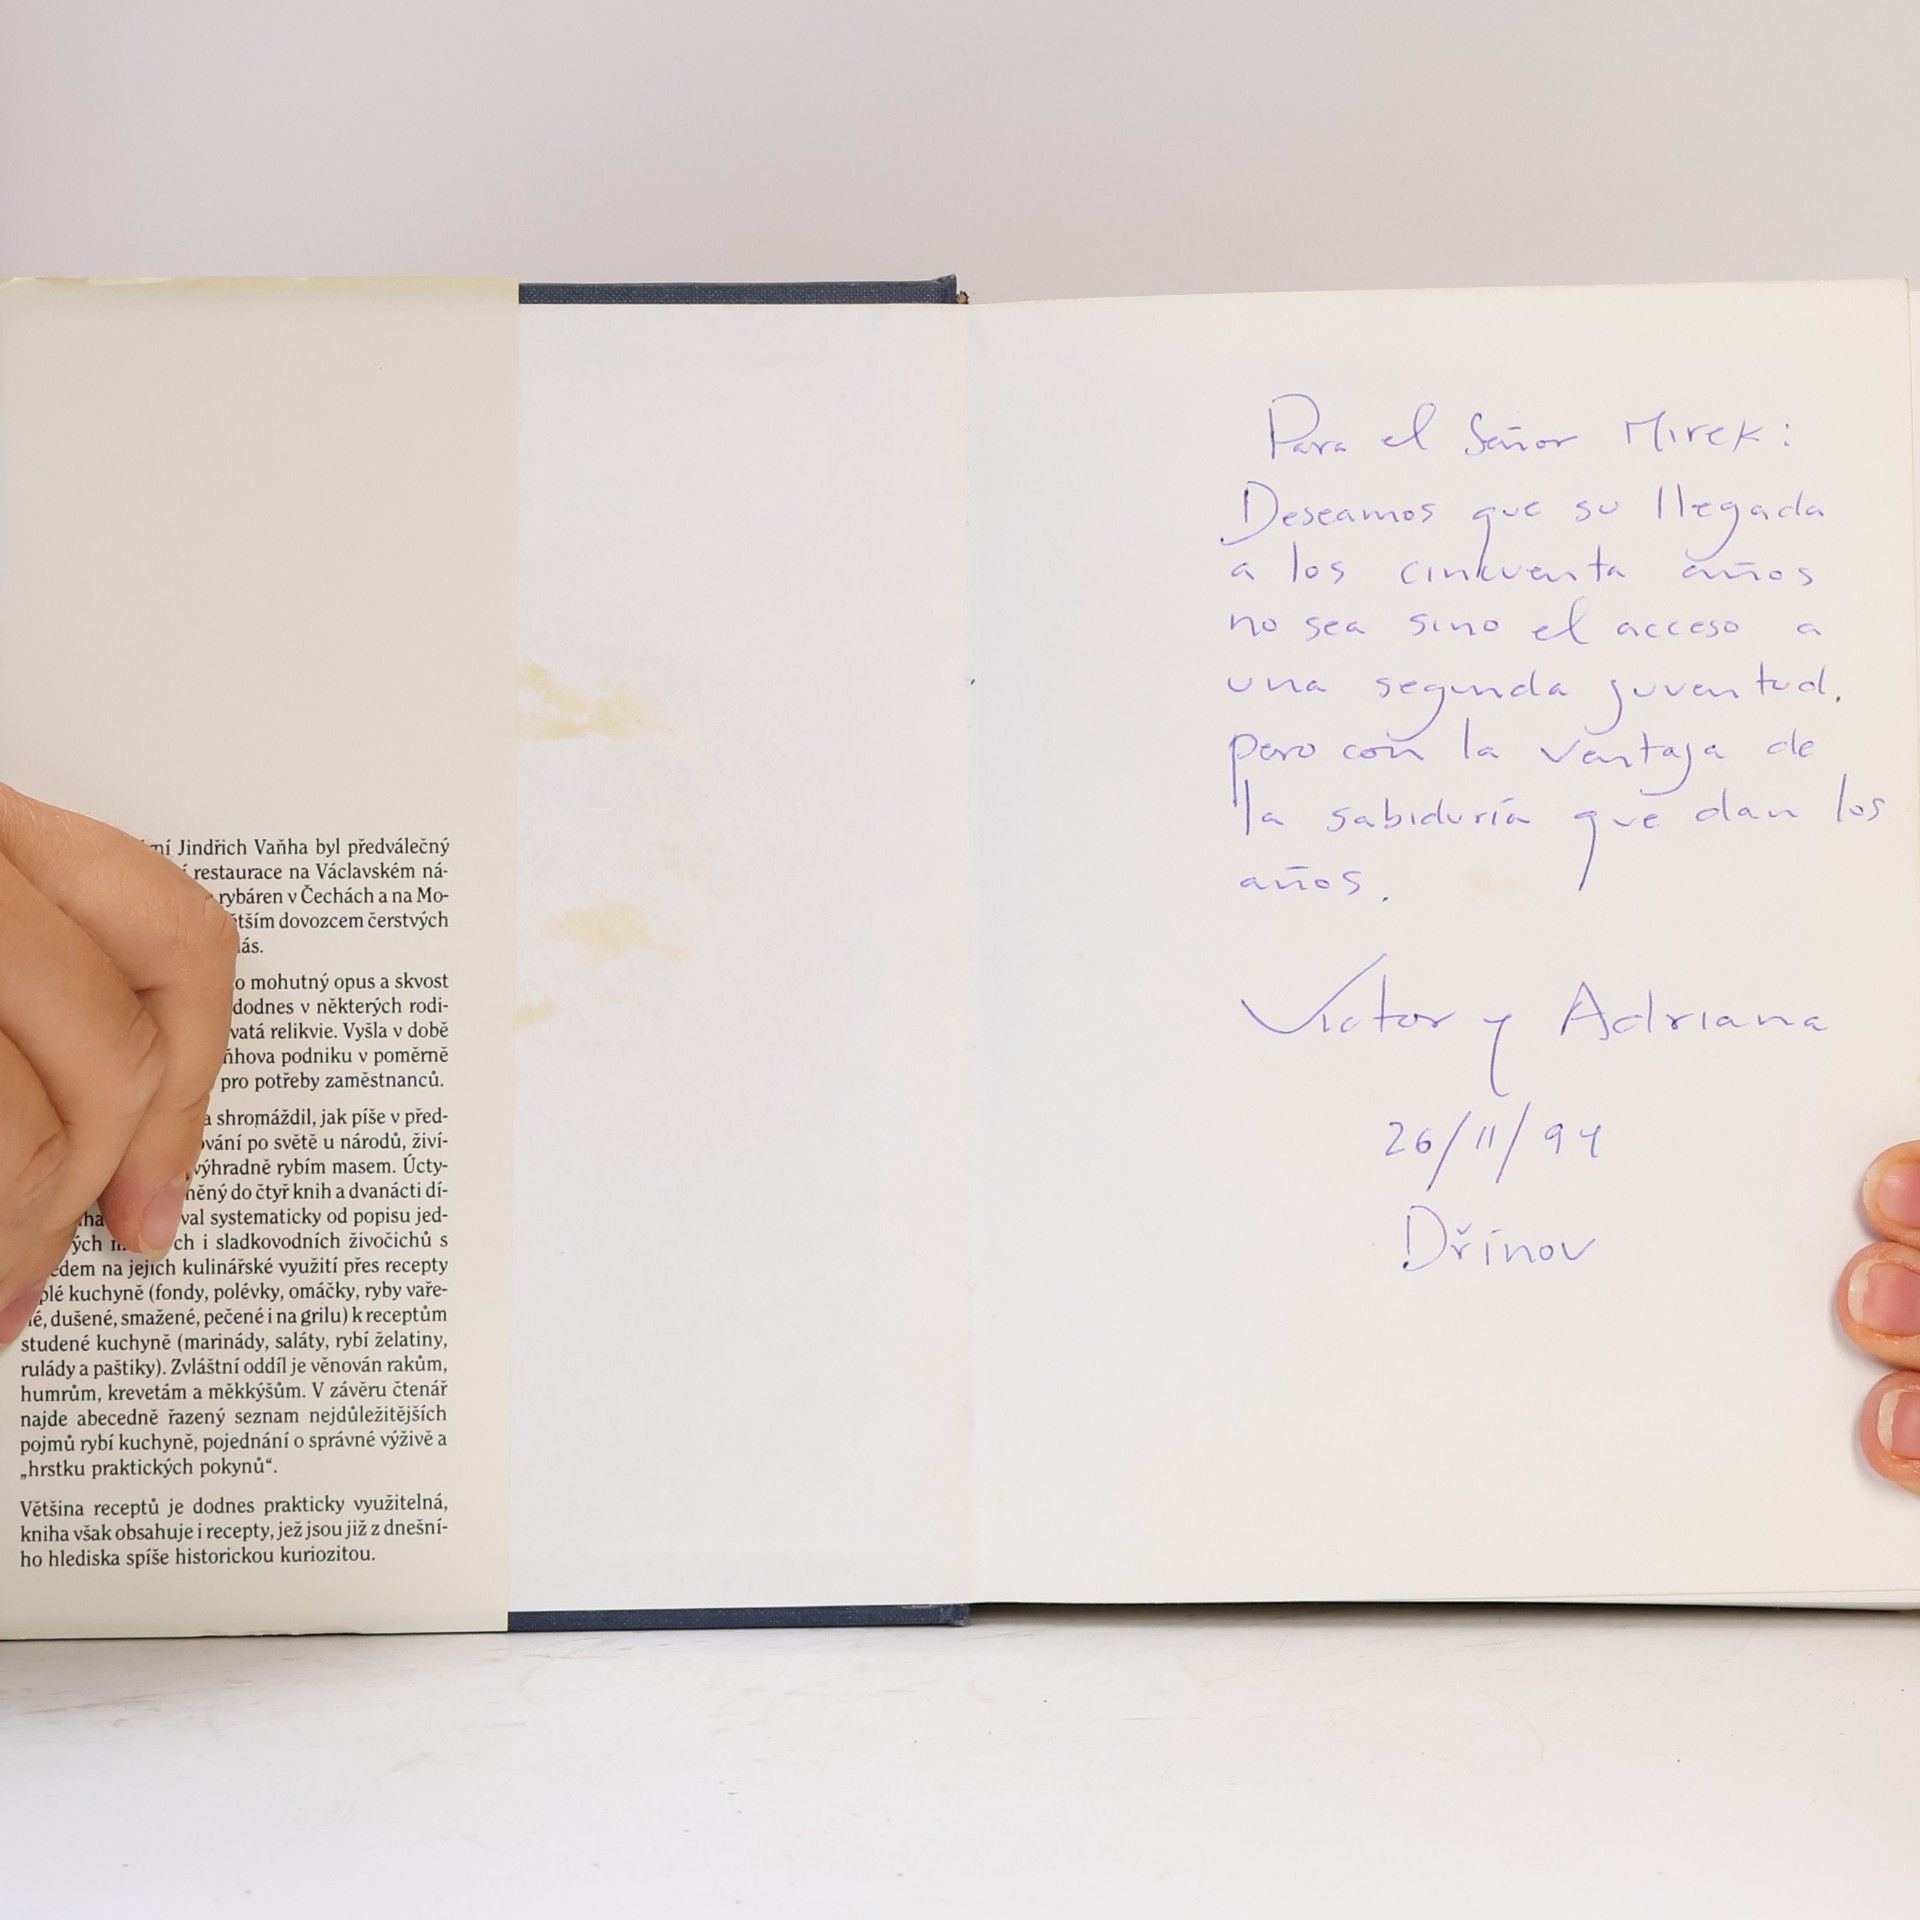 Jindřich Vaňha byl předválečný
restaurace na Václavském ná-
rybáren v Čechách a na Mo-
dovozcem čerstvých
mohutný opus a skvost
dodnes v některých rodi-
relikvie. Vyšla v době
podniku v poměrně
pro potřeby zaměstnanců.
shromáždil, jak píše v před-
po světě u národů, živí-
výhradně rybím masem. Úcty-
do čtyř knih a dvanácti dí-
systematicky od popisu jed-
i sladkovodních živočichů s
na jejich kulinářské využití přes recepty
kuchyně (fondy, polévky, omáčky, ryby vaře-
dušené, smažené, pečené i na grilu) k receptům
studené kuchyně (marinády, saláty, rybí želatiny,
rulády a paštiky). Zvláštní oddíl je věnován rakům,
humrům, krevetám a měkkýšům. V závěru čtenář
najde abecedně řazený seznam nejdůležitějších
pojmů rybí kuchyně, pojednání o správné výživě a
„hrstku praktických pokynů“.
Většina receptů je dodnes prakticky využitelná,
kniha však obsahuje i recepty, jež jsou již z dnešní-
ho hlediska spíše historickou kuriozitou.
Para el Señor Mirek:
Deseamos que su llegada
a los cincuenta años
no sea sino el acceso a
una segunda juventud,
pero con la ventaja de
la sabiduría que dan los
años.
Victor y Adriana
26/11/94
Dřínov